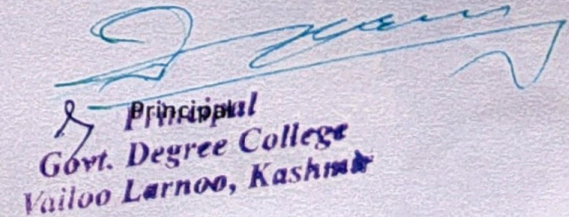 Principal
Principal
Govt. Degree College
Vailoo Larnoo, Kashmir